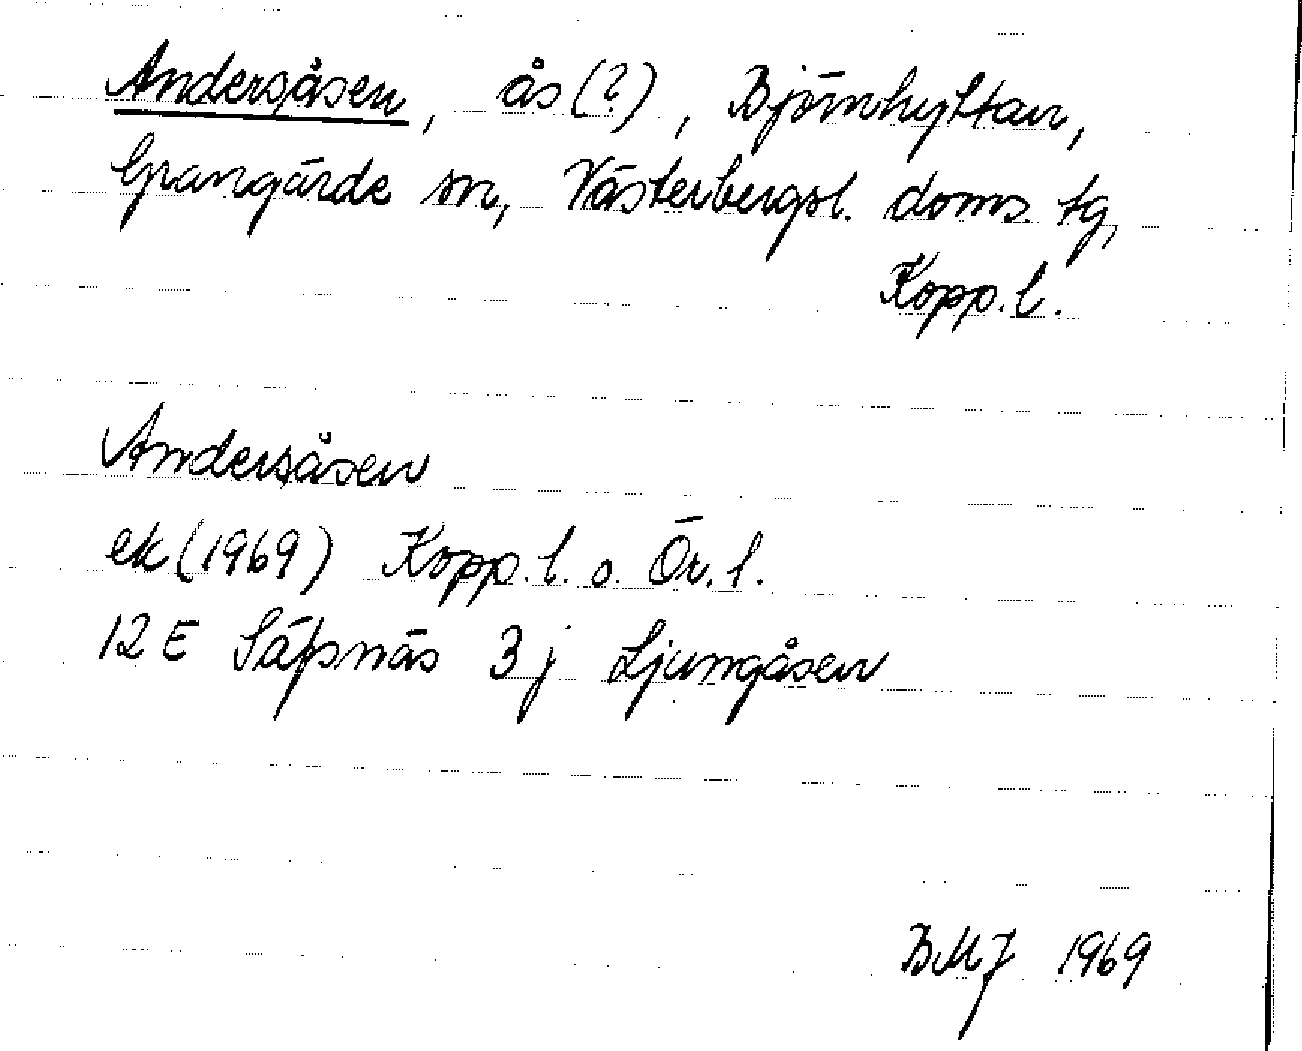 Andersåsen, ås (?), Björnhyttan,
Grangärde sn, Västerbergsl. doms. tg,
Kopp. l.
Andersåsen
ek (1969) Kopp. l. o. Ör. l.
12 E Säfsnäs 3 j Ljungåsen
BMJ 1969